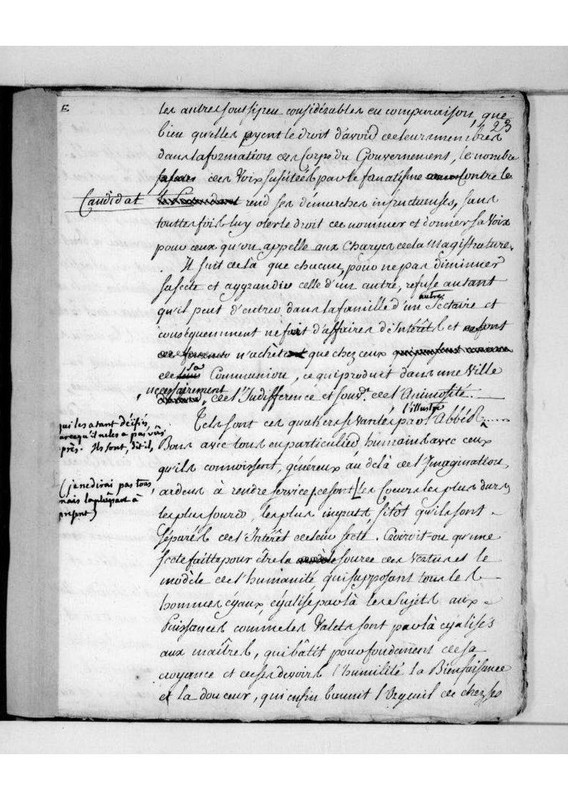 E.
les autres sont si peu considérables en comparaison, que
1423
bien qu'elles ayent le droit d'avoir de leurs membres
dans la formation des Corps du Gouvernement, le nombre
des Voix suscitées par le fanatisme contre le
Candidat rend ses démarches infructueuses, sans
touttes fois luy oter le droit de nommer et donner sa voix
pour ceux qu'on appelle aux Charges de la Magistrature.
Il suit de là que chacun, pour ne pas diminuer
sa secte et aggrandir celle d'un autre, refuse autant
qu'il peut d'entrer dans la famille d'un autre Sectaire et
consequemment ne fait d'affaires d'Intérêt et
n'achete que chez ceux
de sa Communion, ce qui produit dans une Ville
necessairement, de l'Indifférence et souvt. de l'Animosité.
Tels sont ces quakers si vantés par l'illustre Abbé R.....
qui les a tant déifiés,
parcequ'il ne les a pas vus
près. Ils sont, dit il,
Bons avec tous en particulier humains avec ceux
qu'ils connoissent, généreux au delà de l'Imagination,
ardens à rendre service, ce sont
(je ne dirai pas tous
mais la plupart à
présent)
les Coeurs les plus durs,
les plus sourds, les plus sitot qu'ils sont
séparés de l'Intérêt de leur secte. Croiroit-on qu'une
secte faitte pour être la source des Vertus et le
modèle de l'humanité, qui supposant tous les
hommes égaux égalise par là les Sujets aux
Puissances comme les Valets sont par là égalisés
aux maitres, qui bâtit pour fondement de sa
croyance et de ses devoirs l'humilité la Bienfaisance
et la douceur, qui enfin bannit l'Orgueil de chez se